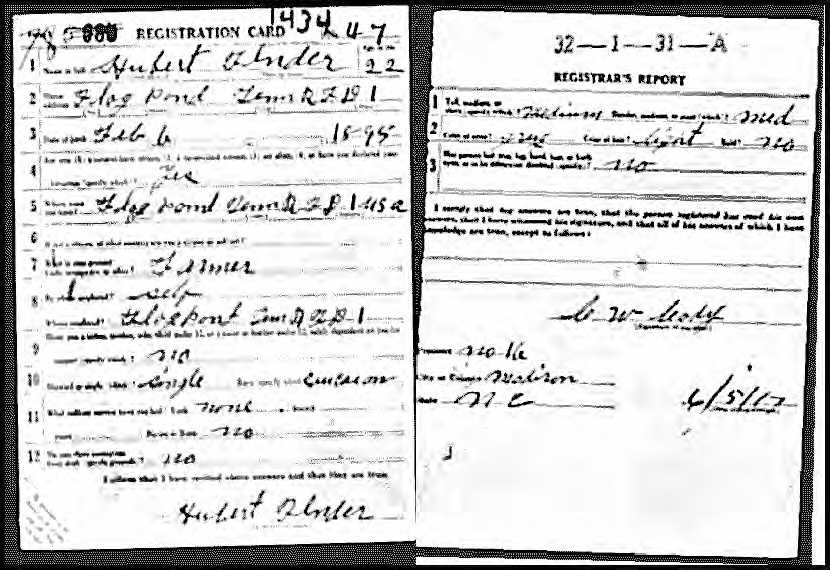 1434
REGISTRATION CARD No 47
1 Name in full Hubert Flnder Age in yrs 22
2 Home address Flag Pond Tenn R F D 1
3 Date of birth Feb 6 1895
4 Yes
5 Where were you born? Flag Pond Tenn R F D 1 USA
6
7 What is your present trade, occupation or office? Farmer
8 By whom employed? Self
Where employed? Flag Pont Tenn R F D 1
9
support (specify which)? no
10 Married or single (which)? Single Race (specify which)? Caucasion
11 What military service have you had? Rank none Branch
years Nation or State no
12 Do you claim exemption from draft (specify grounds)? no
I affirm that I have verified above answers and that they are true.
Hubert Flnder
32—1—31—A
REGISTRAR'S REPORT
1 Tall, medium, or short (specify which)? Medium Slender, medium, or stout (which)? med
2 Color of eyes? Color of hair? light Bald? no
3 no
I certify that my answers are true, that the person registered has read his own
answers, that I have witnessed his signature, and that all of his answers of which I have
knowledge are true, except as follows:
C W
(Signature of registrar)
Precinct no 16
City or County Madison
State N C 6/5/17